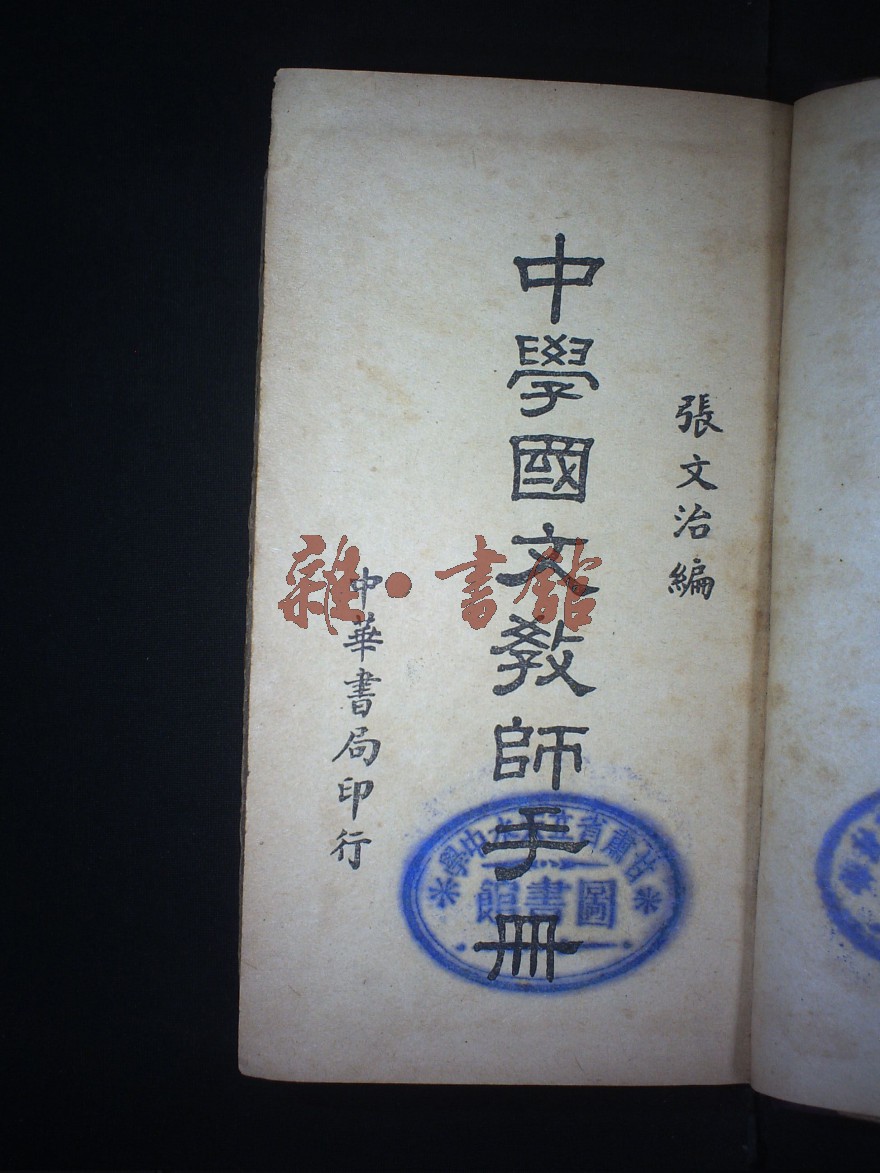 張文治編
中學國文教師手冊
中華書局印行
雜·書館
甘肅省立天水中學
圖書館